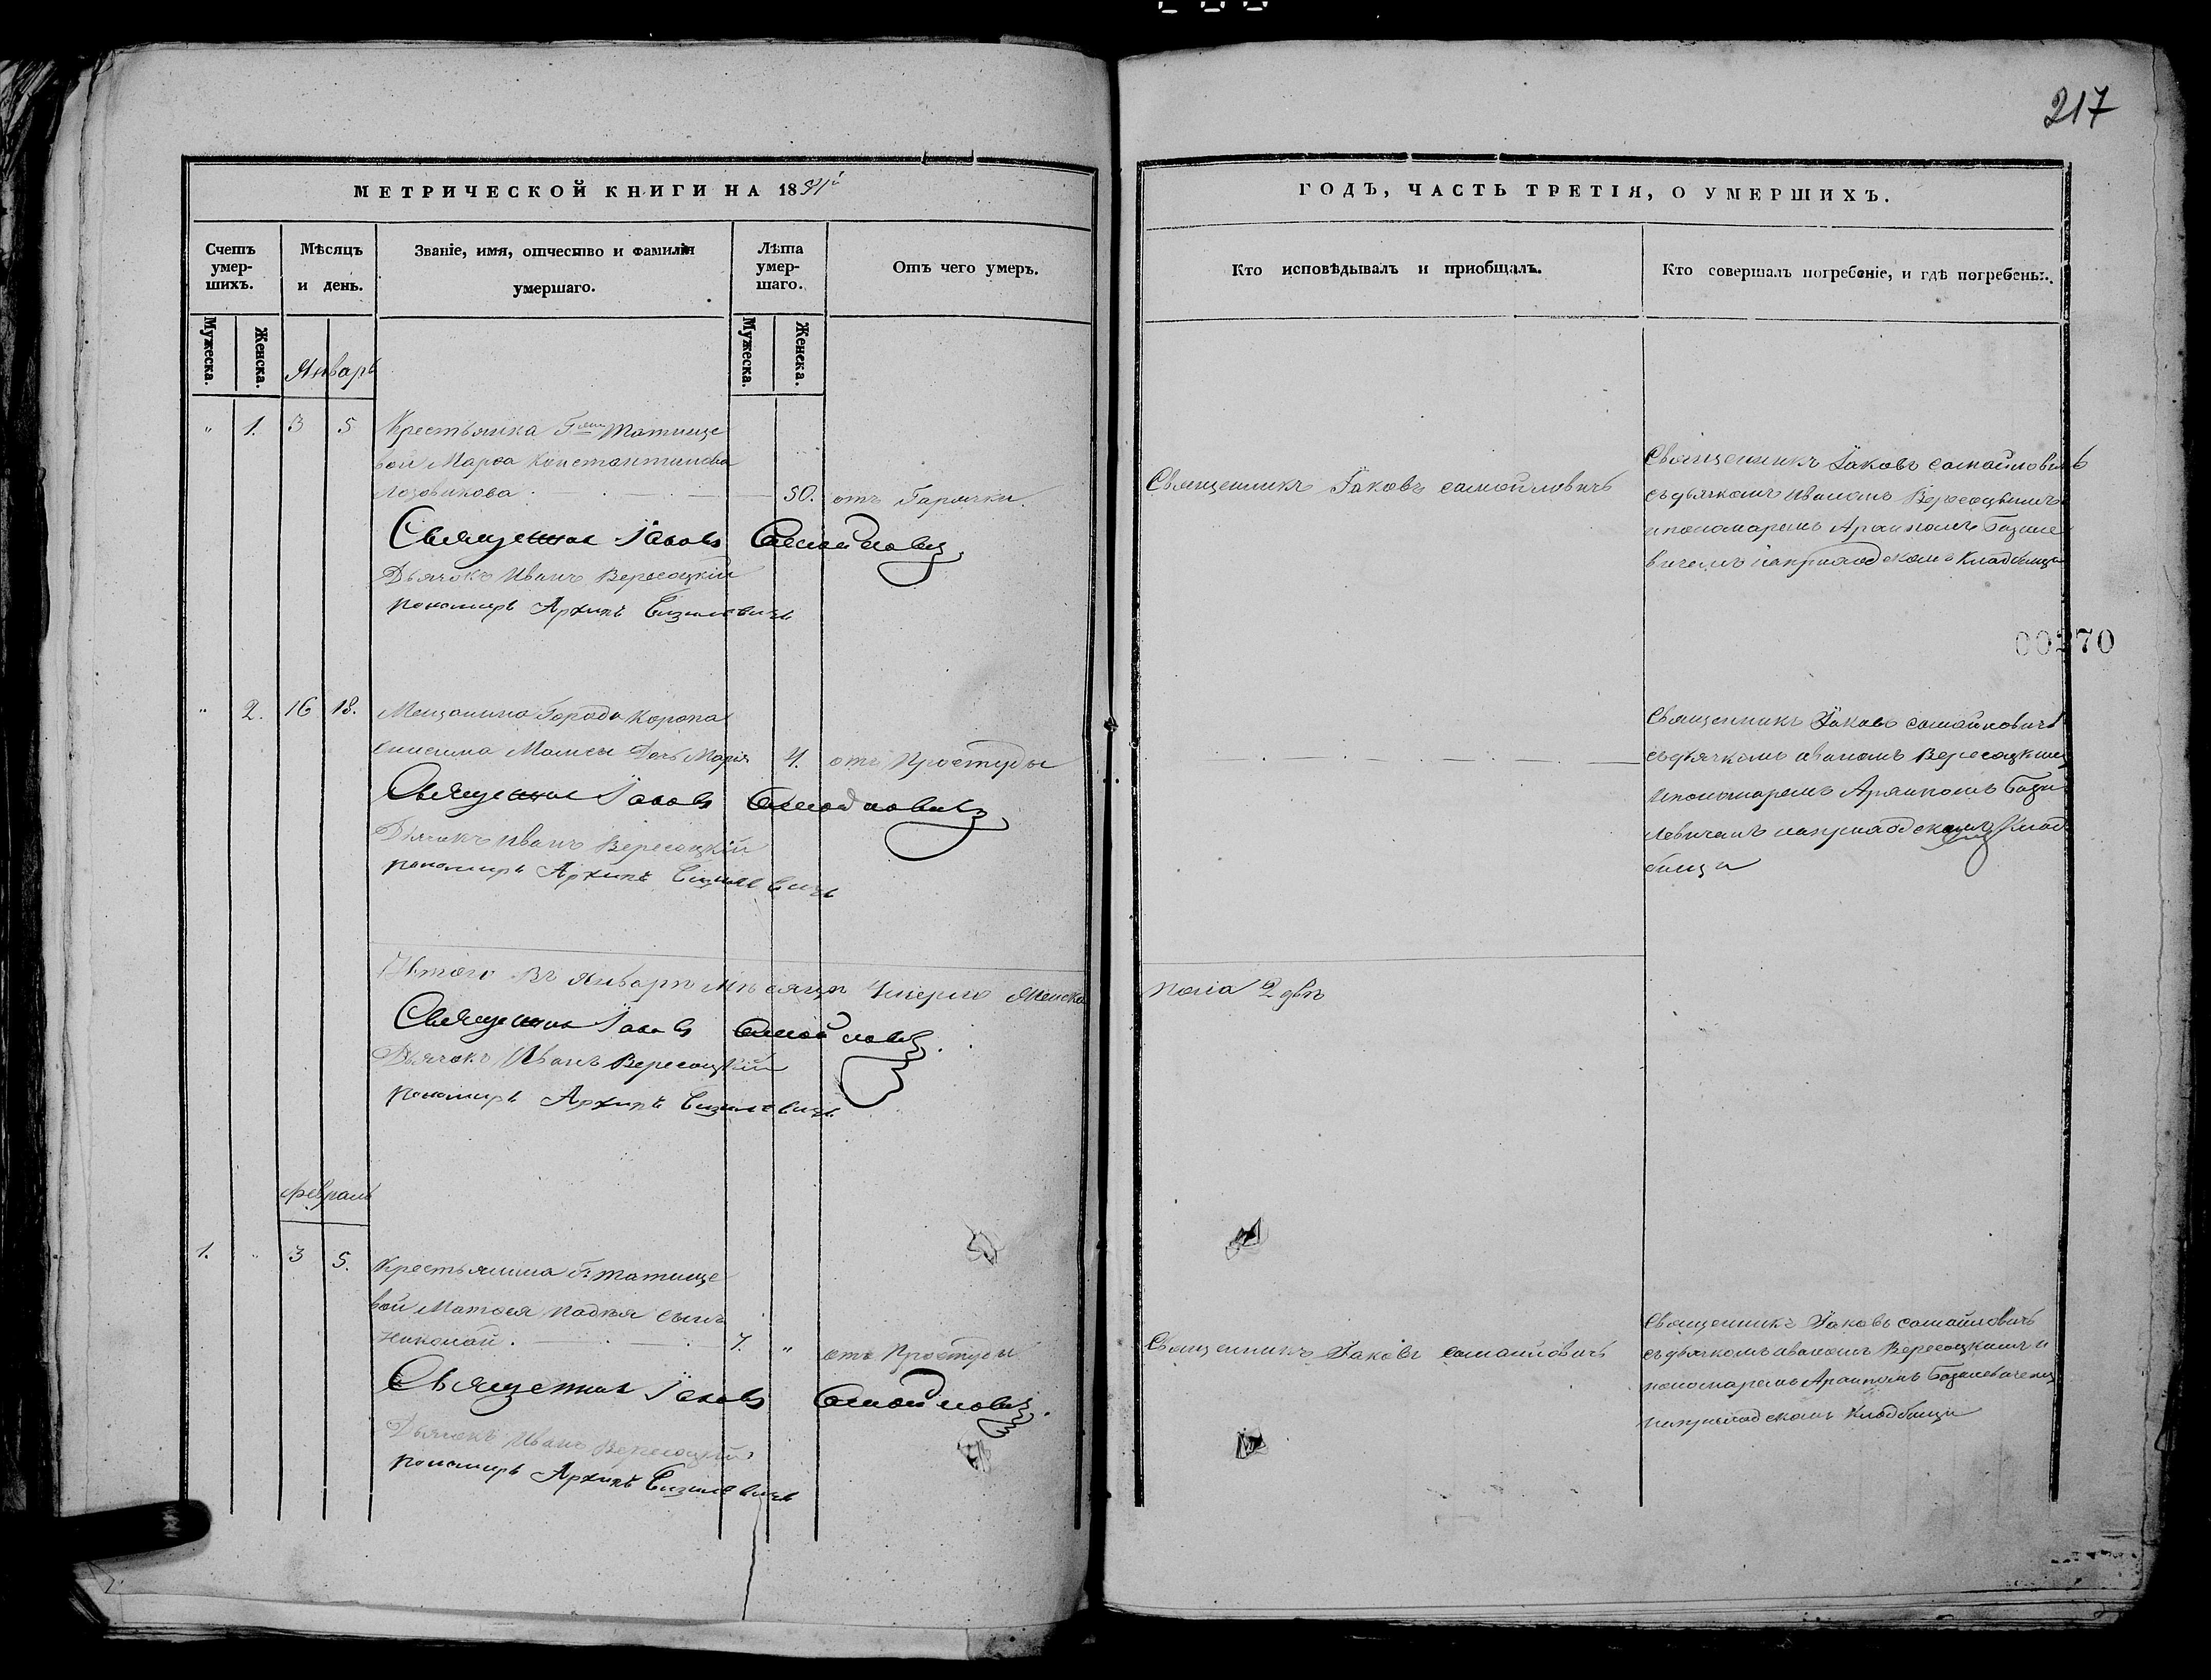 217
МЕТРИЧЕСКОЙ КНИГИ НА 18
ГОДЪ, ЧАСТЬ ТРЕТІЯ, О УМЕРШИХЪ.
Счетъ умершихъ.
Мѣсяцъ и день.
Званіе, имя, отчество и фамилія умершаго.
Лѣта умершаго.
Отъ чего умеръ.
Кто исповѣдывалъ и приобщалъ.
Кто совершалъ погребеніе, и гдѣ погребены.
Мужеска.
Женска.
Мужеска.
Женска.
Январь
" 1. 3 5 Крестьянка Г Татище
вой Марѳа Константинова
Лозовикова 50. отъ Гарячки.
Священникъ Іаковъ Самойловичъ
Дьячокъ Иванъ Вересоцкій
пономарь Архипъ Базилевичъ
Священникъ Іаковъ Самойловичъ
Священникъ Іаковъ Самойловичъ
съ дьячкомъ Иваномъ Вересоцкимъ
и пономаремъ Архипомъ Базиле
вичемъ на приходскомъ Кладбищи
00270
" 2. 16 18. Мещанина Города Коропа
Дочь Марія 4. отъ Простуды
Священникъ Іаковъ Самойловичъ
Дьячокъ Иванъ Вересоцкій
пономарь Архипъ Базилевичъ
Священникъ Іаковъ Самойловичъ
съ дьячкомъ Иваномъ Вересоцкимъ
и пономаремъ Архипомъ Бази
левичемъ на приходскомъ Клад
бищи
Итого въ Январѣ мѣсяцѣ Умерло Женска
пола 2 двѣ
Священникъ Іаковъ Самойловичъ
Дьячокъ Иванъ Вересоцкій
пономарь Архипъ Базилевичъ
Февраль
1. " 3 5. Крестьянина Г Татище
вой Матѳея сынъ
Николай. 7. " отъ Простуды
Священникъ Іаковъ Самойловичъ
Дьячокъ Иванъ Вересоцкій
пономарь Архипъ Базилевичъ
Священникъ Іаковъ Самойловичъ
Священникъ Іаковъ Самойловичъ
съ дьячкомъ Иваномъ Вересоцкимъ и
пономаремъ Архипомъ Базилевичемъ
на приходскомъ Кладбищи